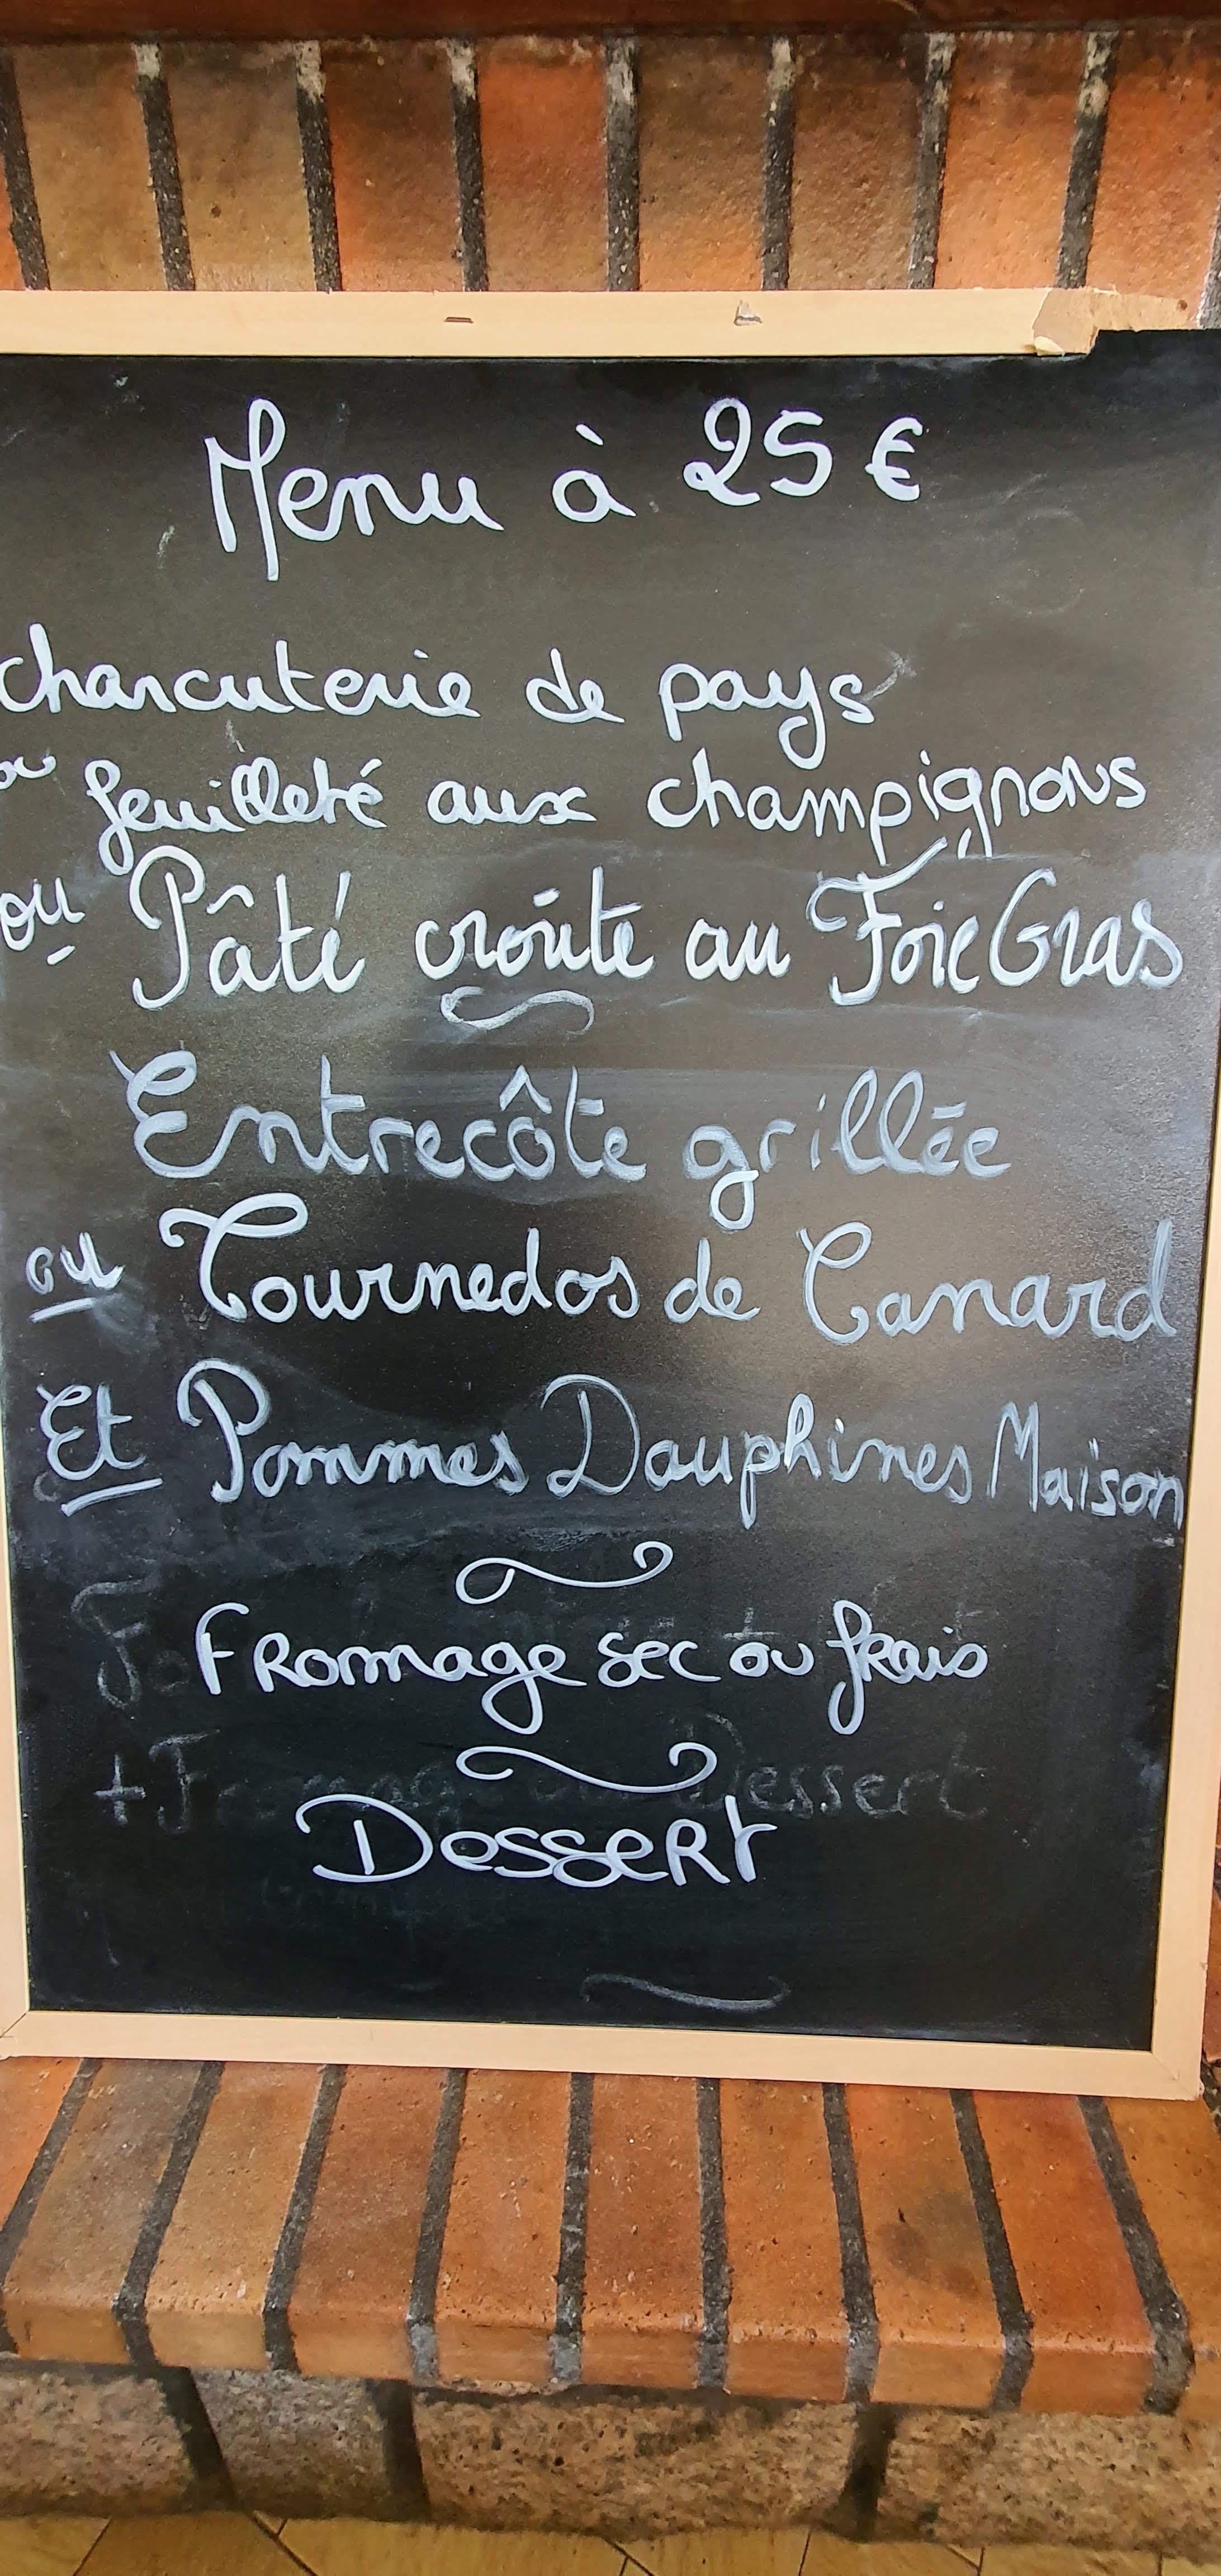 Menu à 25 €
Charcuterie de pays
ou feuilleté aux champignons
ou Pâté croûte au Foie Gras
Entrecôte grillée
ou Tournedos de Canard
Et Pommes Dauphines Maison
Fromage sec ou frais
Dessert